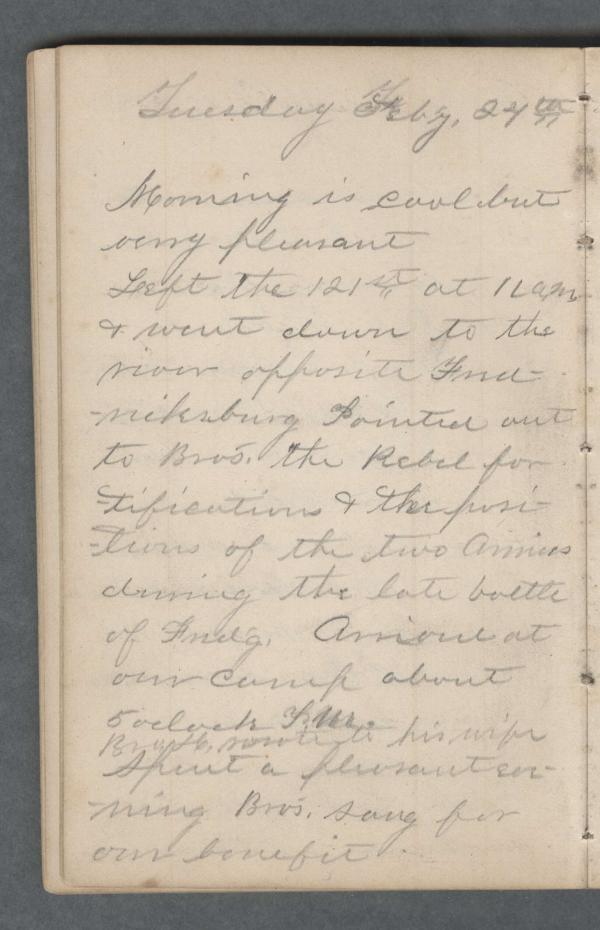 Tuesday Feby, 24th
Morning is cool but
very pleasant
Left the 121st at 11 a,m
& went down to the
river opposite Fred-
-ricksburg Pointed out
to Bros. the Rebel for
-tifications & the posi-
-tions of the two Armies
during the late battle
of Fredg. Arrived at
our camp about
5 oclock P.M.
Bro. wrote to his wife
Spent a pleasant eve-
-ning Bros. sang for
our benefit.